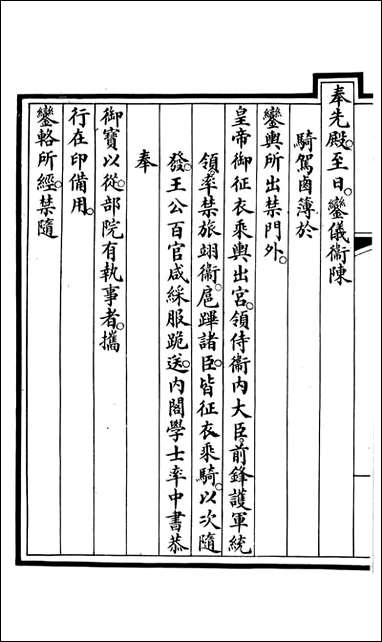 奉先殿。至日。鑾儀衞陳
騎駕鹵簿於
鑾輿所出禁門外。
皇帝御征衣乘輿出宮。領侍衞內大臣。前鋒護軍統
領。率禁旅翊衞。扈蹕諸臣。皆征衣乘騎。以次隨
發。王公百官咸綵服跪送。內閣學士率中書恭
奉
御寶以從。部院有執事者。攜
行在印備用。
鑾輅所經。禁隨